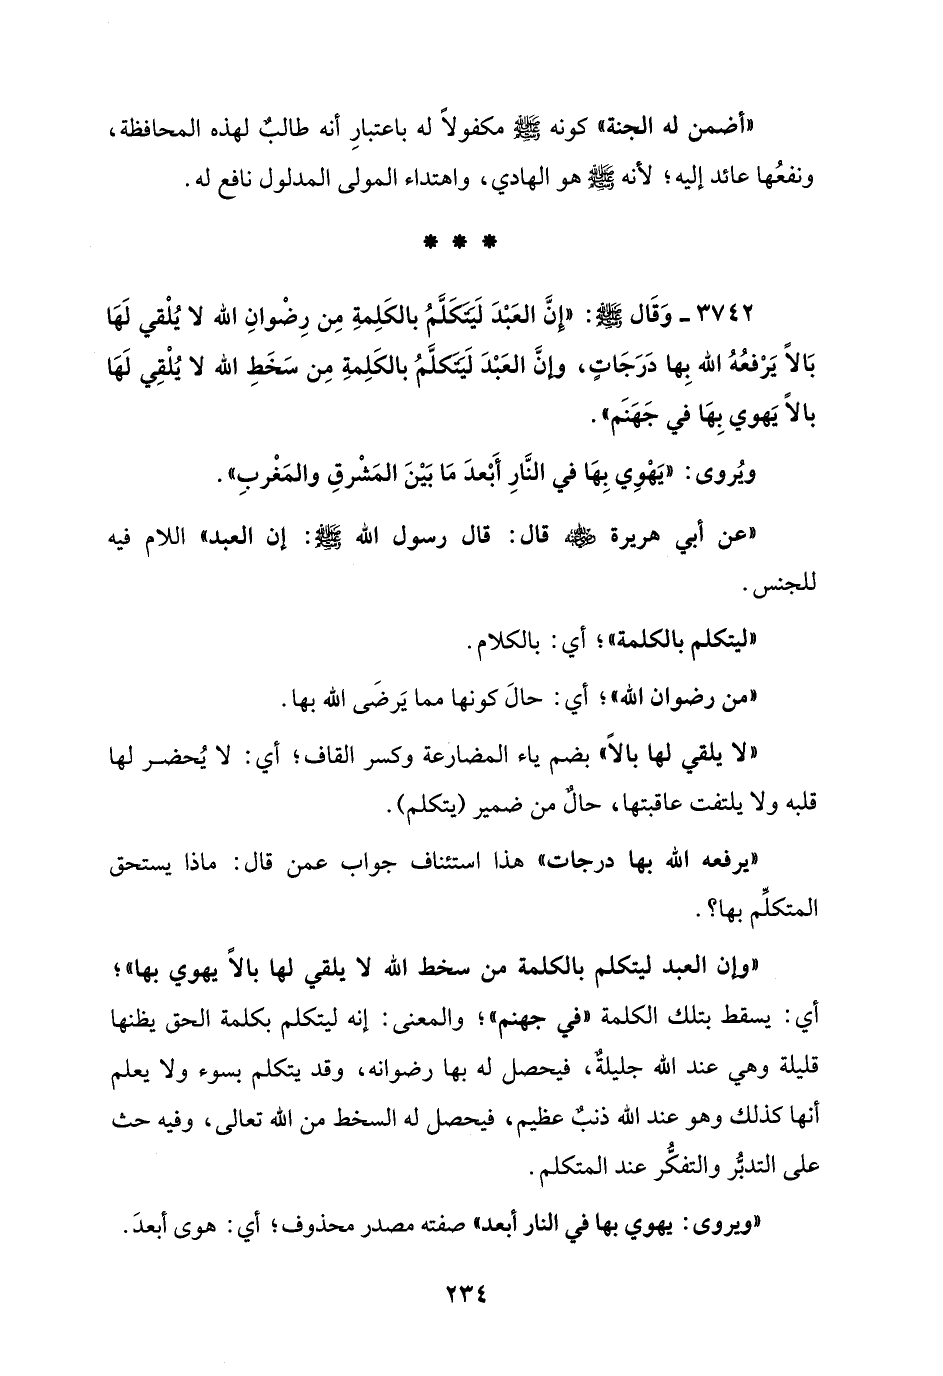 «أضمن له الجنة» كونه ﷺ مكفولاً له باعتبارِ أنه طالبٌ لهذه المحافظة،
ونفعُها عائد إليه؛ لأنه ﷺ هو الهادي، واهتداء المولى المدلول نافع له.
* * *
٣٧٤٢ ـ وَقَال ﷺ: «إِنَّ العَبْدَ لَيَتَكَلَّمُ بالكَلِمةِ مِن رِضْوانِ الله لا يُلْقي لَهَا
بَالاً يَرْفعُهُ الله بِها دَرَجَاتٍ، وإنَّ العَبْدَ لَيَتَكلَّمُ بالكَلِمةِ مِن سَخَطِ الله لا يُلْقِي لَهَا
بالاً يَهوي بِهَا في جَهَنَم».
ويُروى: «يَهْوِي بِهَا في النَّارِ أَبْعدَ مَا بَيْنَ المَشْرقِ والمَغْربِ».
«عن أبي هريرة ﵁ قال: قال رسول الله ﷺ: إن العبد» اللام فيه
للجنس.
«ليتكلم بالكلمة»؛ أي: بالكلام.
«من رضوان الله»؛ أي: حالَ كونها مما يَرضَى الله بها.
«لا يلقي لها بالاً» بضم ياء المضارعة وكسر القاف؛ أي: لا يُحضر لها
قلبه ولا يلتفت عاقبتها، حالٌ من ضمير (يتكلم).
«يرفعه الله بها درجات» هذا استئناف جواب عمن قال: ماذا يستحق
المتكلِّم بها؟.
«وإن العبد ليتكلم بالكلمة من سخط الله لا يلقي لها بالاً يهوي بها»؛
أي: يسقط بتلك الكلمة «في جهنم»؛ والمعنى: إنه ليتكلم بكلمة الحق يظنها
قليلة وهي عند الله جليلةٌ، فيحصل له بها رضوانه، وقد يتكلم بسوء ولا يعلم
أنها كذلك وهو عند الله ذنبٌ عظيم، فيحصل له السخط من الله تعالى، وفيه حث
على التدبُّر والتفكُّر عند المتكلم.
«ويروى: يهوي بها في النار أبعد» صفته مصدر محذوف؛ أي: هوى أبعدَ.
٢٣٤